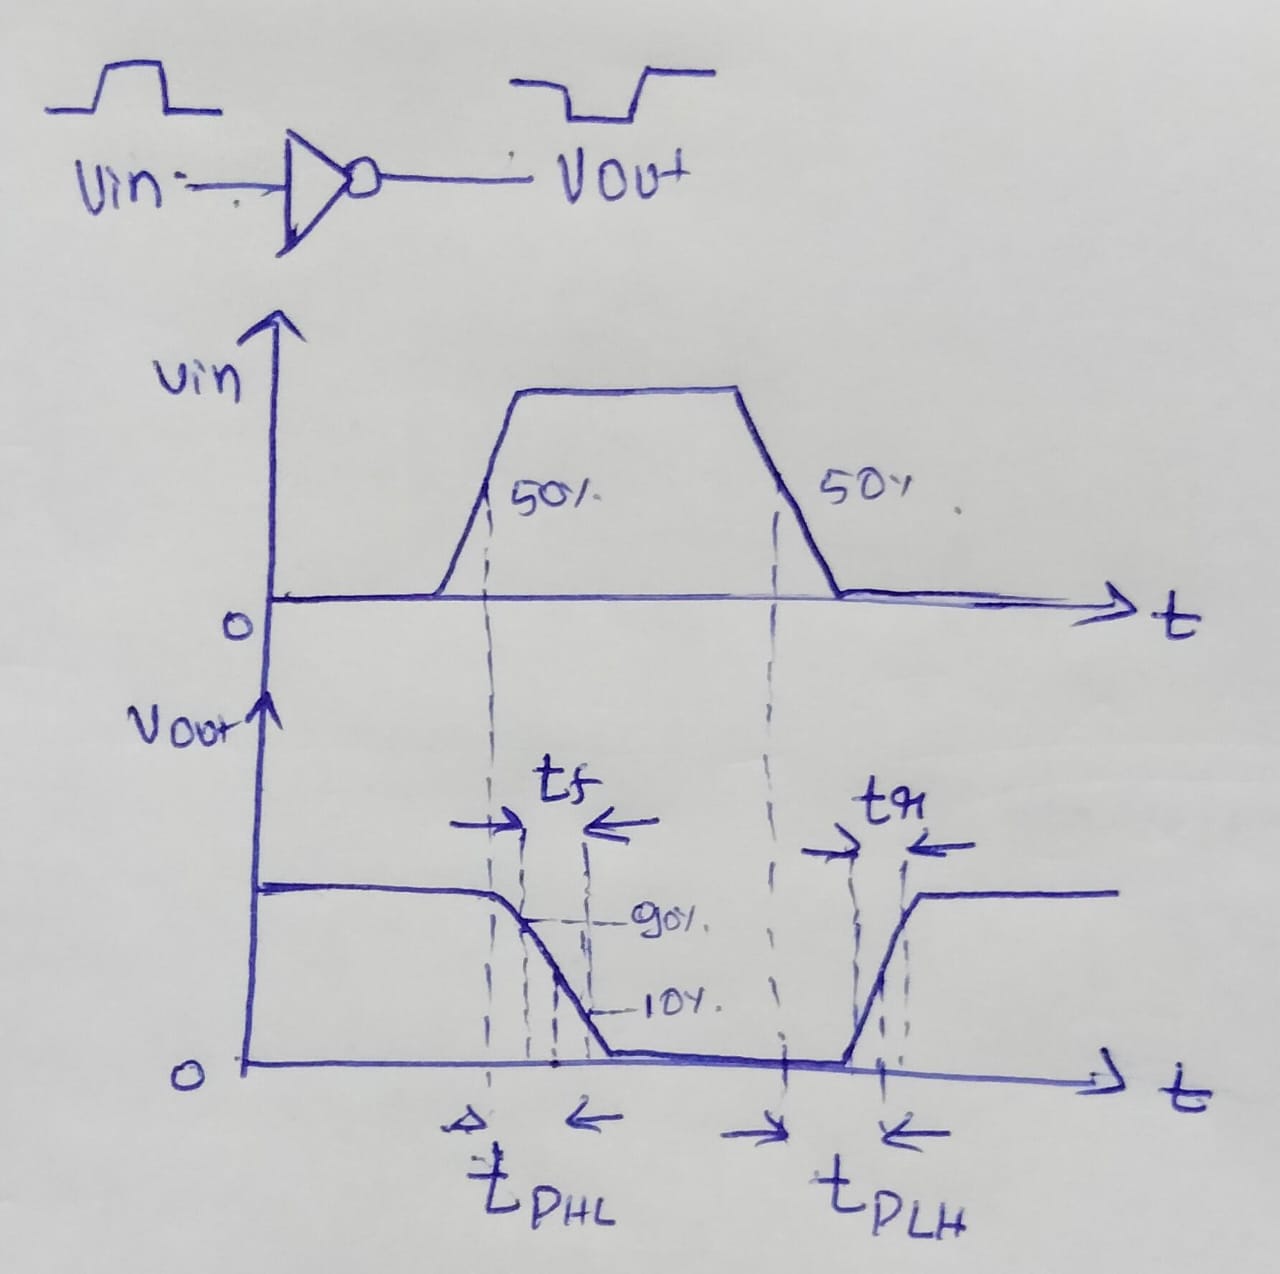 Vin
Vout
Vin
50%
50%
0
t
Vout
tf
tr
90%
10%
0
t
tPHL
tPLH